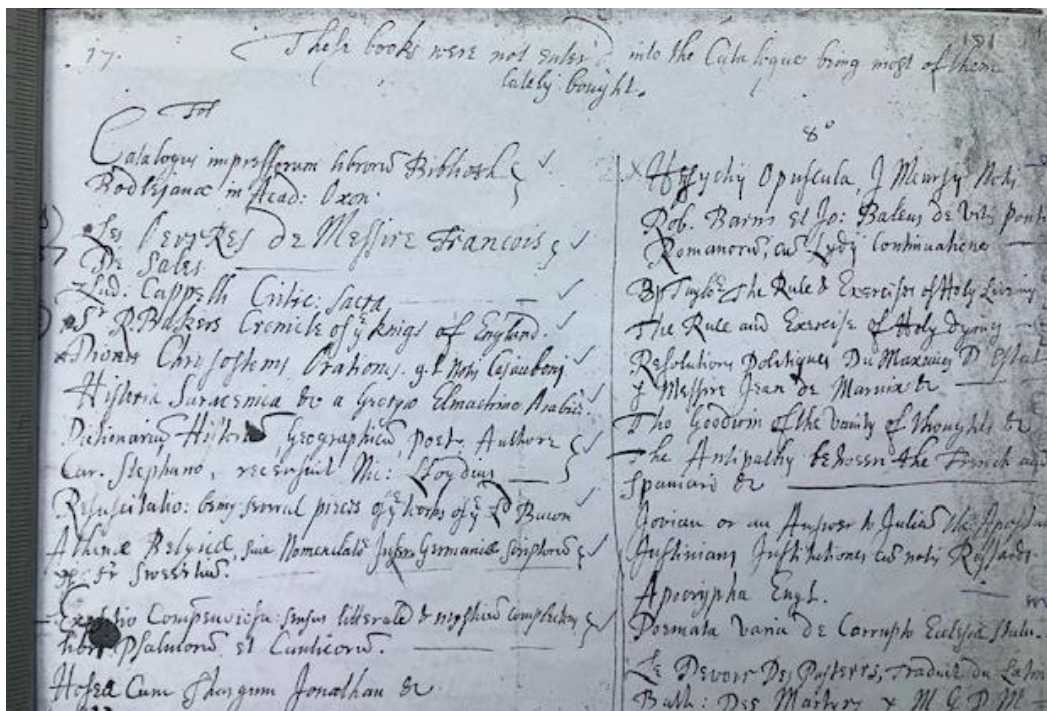 17.
These books were not enterd into the Catalogue being most of them
lately bought.
191
Fol
Catalogus impressorum librorū Biblioth
Bodlejanæ in Acad: Oxon
Les Oevres de Messire Francois
De Sales
Lud. Cappelli Critic: Sacra
Sr R. Bakers Cronicle of ye kings of England.
Dionis Chrysostomi Orationes. g.l Notis Casauboni
Historia Saracenica &c a Georgio Elmacino Arabice.
Dictionariū Historicū, Geographicū, poet. Authore
Car. Stephano, recensuit Nic: Lloydius
Resuscitatio: being several pieces of ye works of ye Ld Bacon
Athenæ Belgicæ, sive Nomenclatō Infer: Germaniæ scriptorū
Fr Sweertiū.
Expositio Compendiosa: sensus litterale & mysticū complectens
libri Psalmorū et Canticorū.
Hosea Cum Thargum Jonathan &c
8º
Hesychii Opuscula, J Meursij Notis
Rob. Barns et Jo: Baleus de Vitis Pontif
Romanorū, cū Lydij Continuatione
Bp Taylors The Rule & Exercises of Holy Living
The Rule and Exercise of Holy Dyeing
Resolutions Politiques Du Maximes D'estat
Messire Jean de Marnix &c
Tho Goodwin of the Vanity of thoughts &c
The Antipathy between the French and
Spaniard &c
Jovian or an Answer to Julian the Apostate
Justiniani Institutiones cū notis
Apocrypha Engl.
Poemata Varia de Corrupto Ecclesiæ statu.
Le Devoir Des Pasteurs, traduit du Latin
Barth: Des Martyrs M G D M